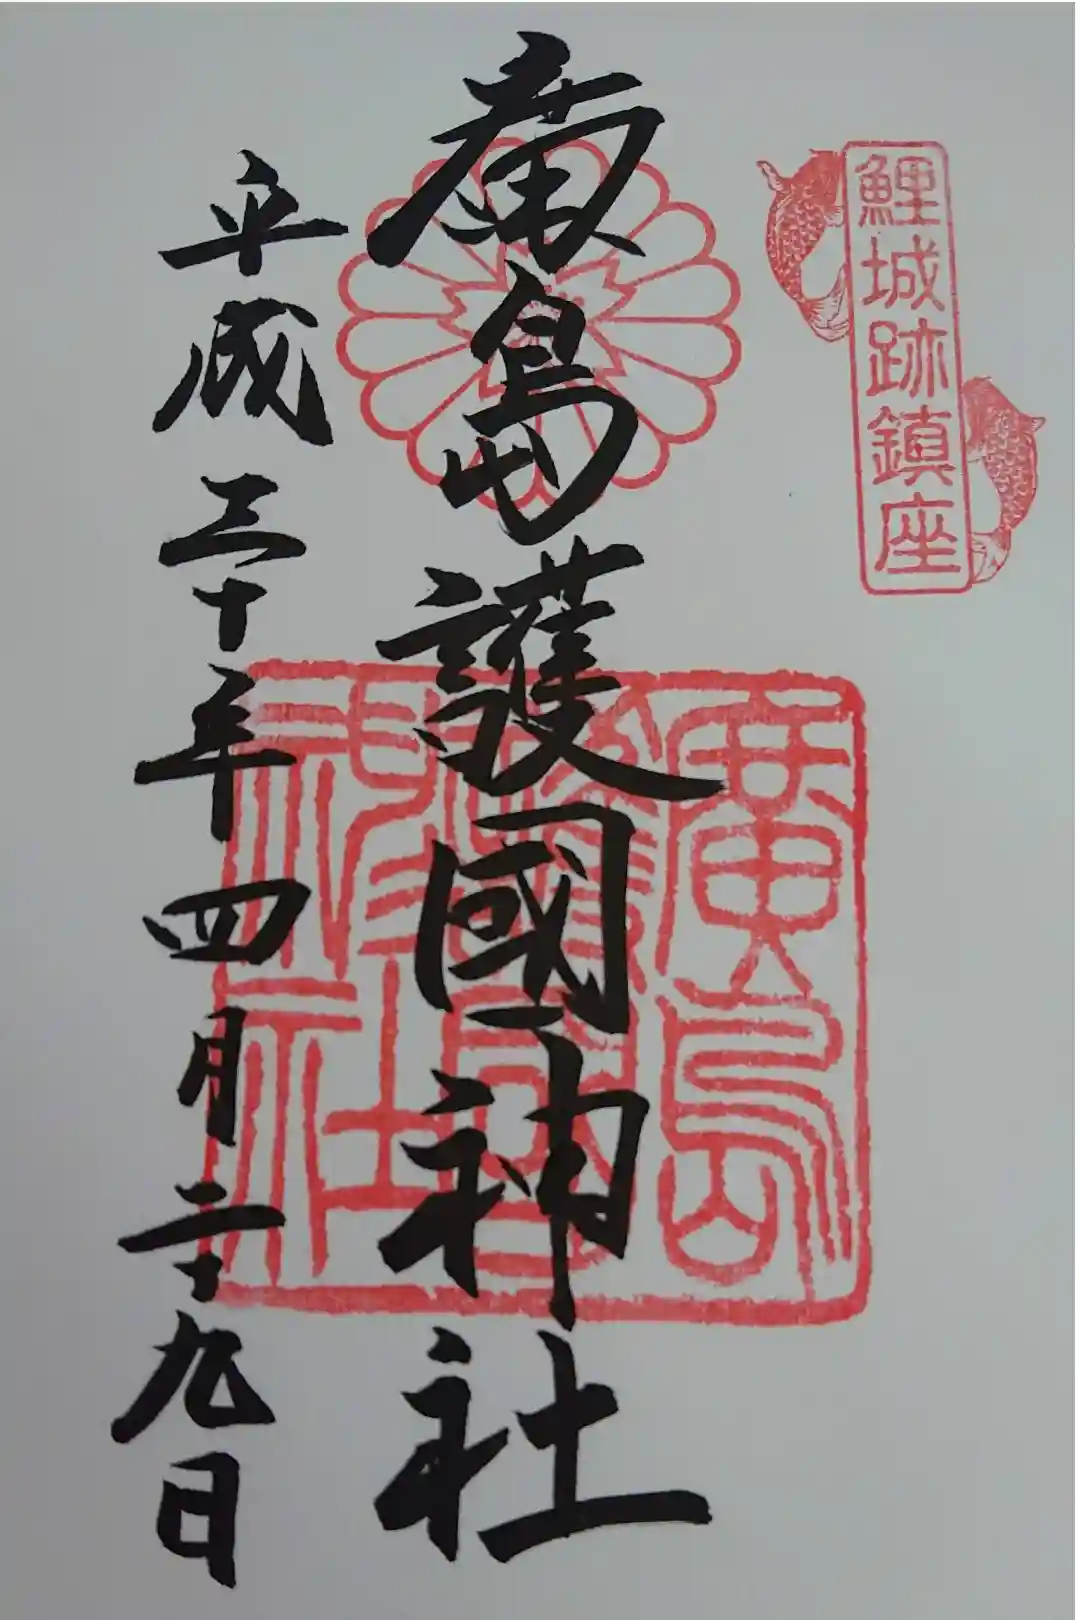 鯉城跡鎮座
廣島護國神社
平成三十年四月二十九日
廣島
護國
神社